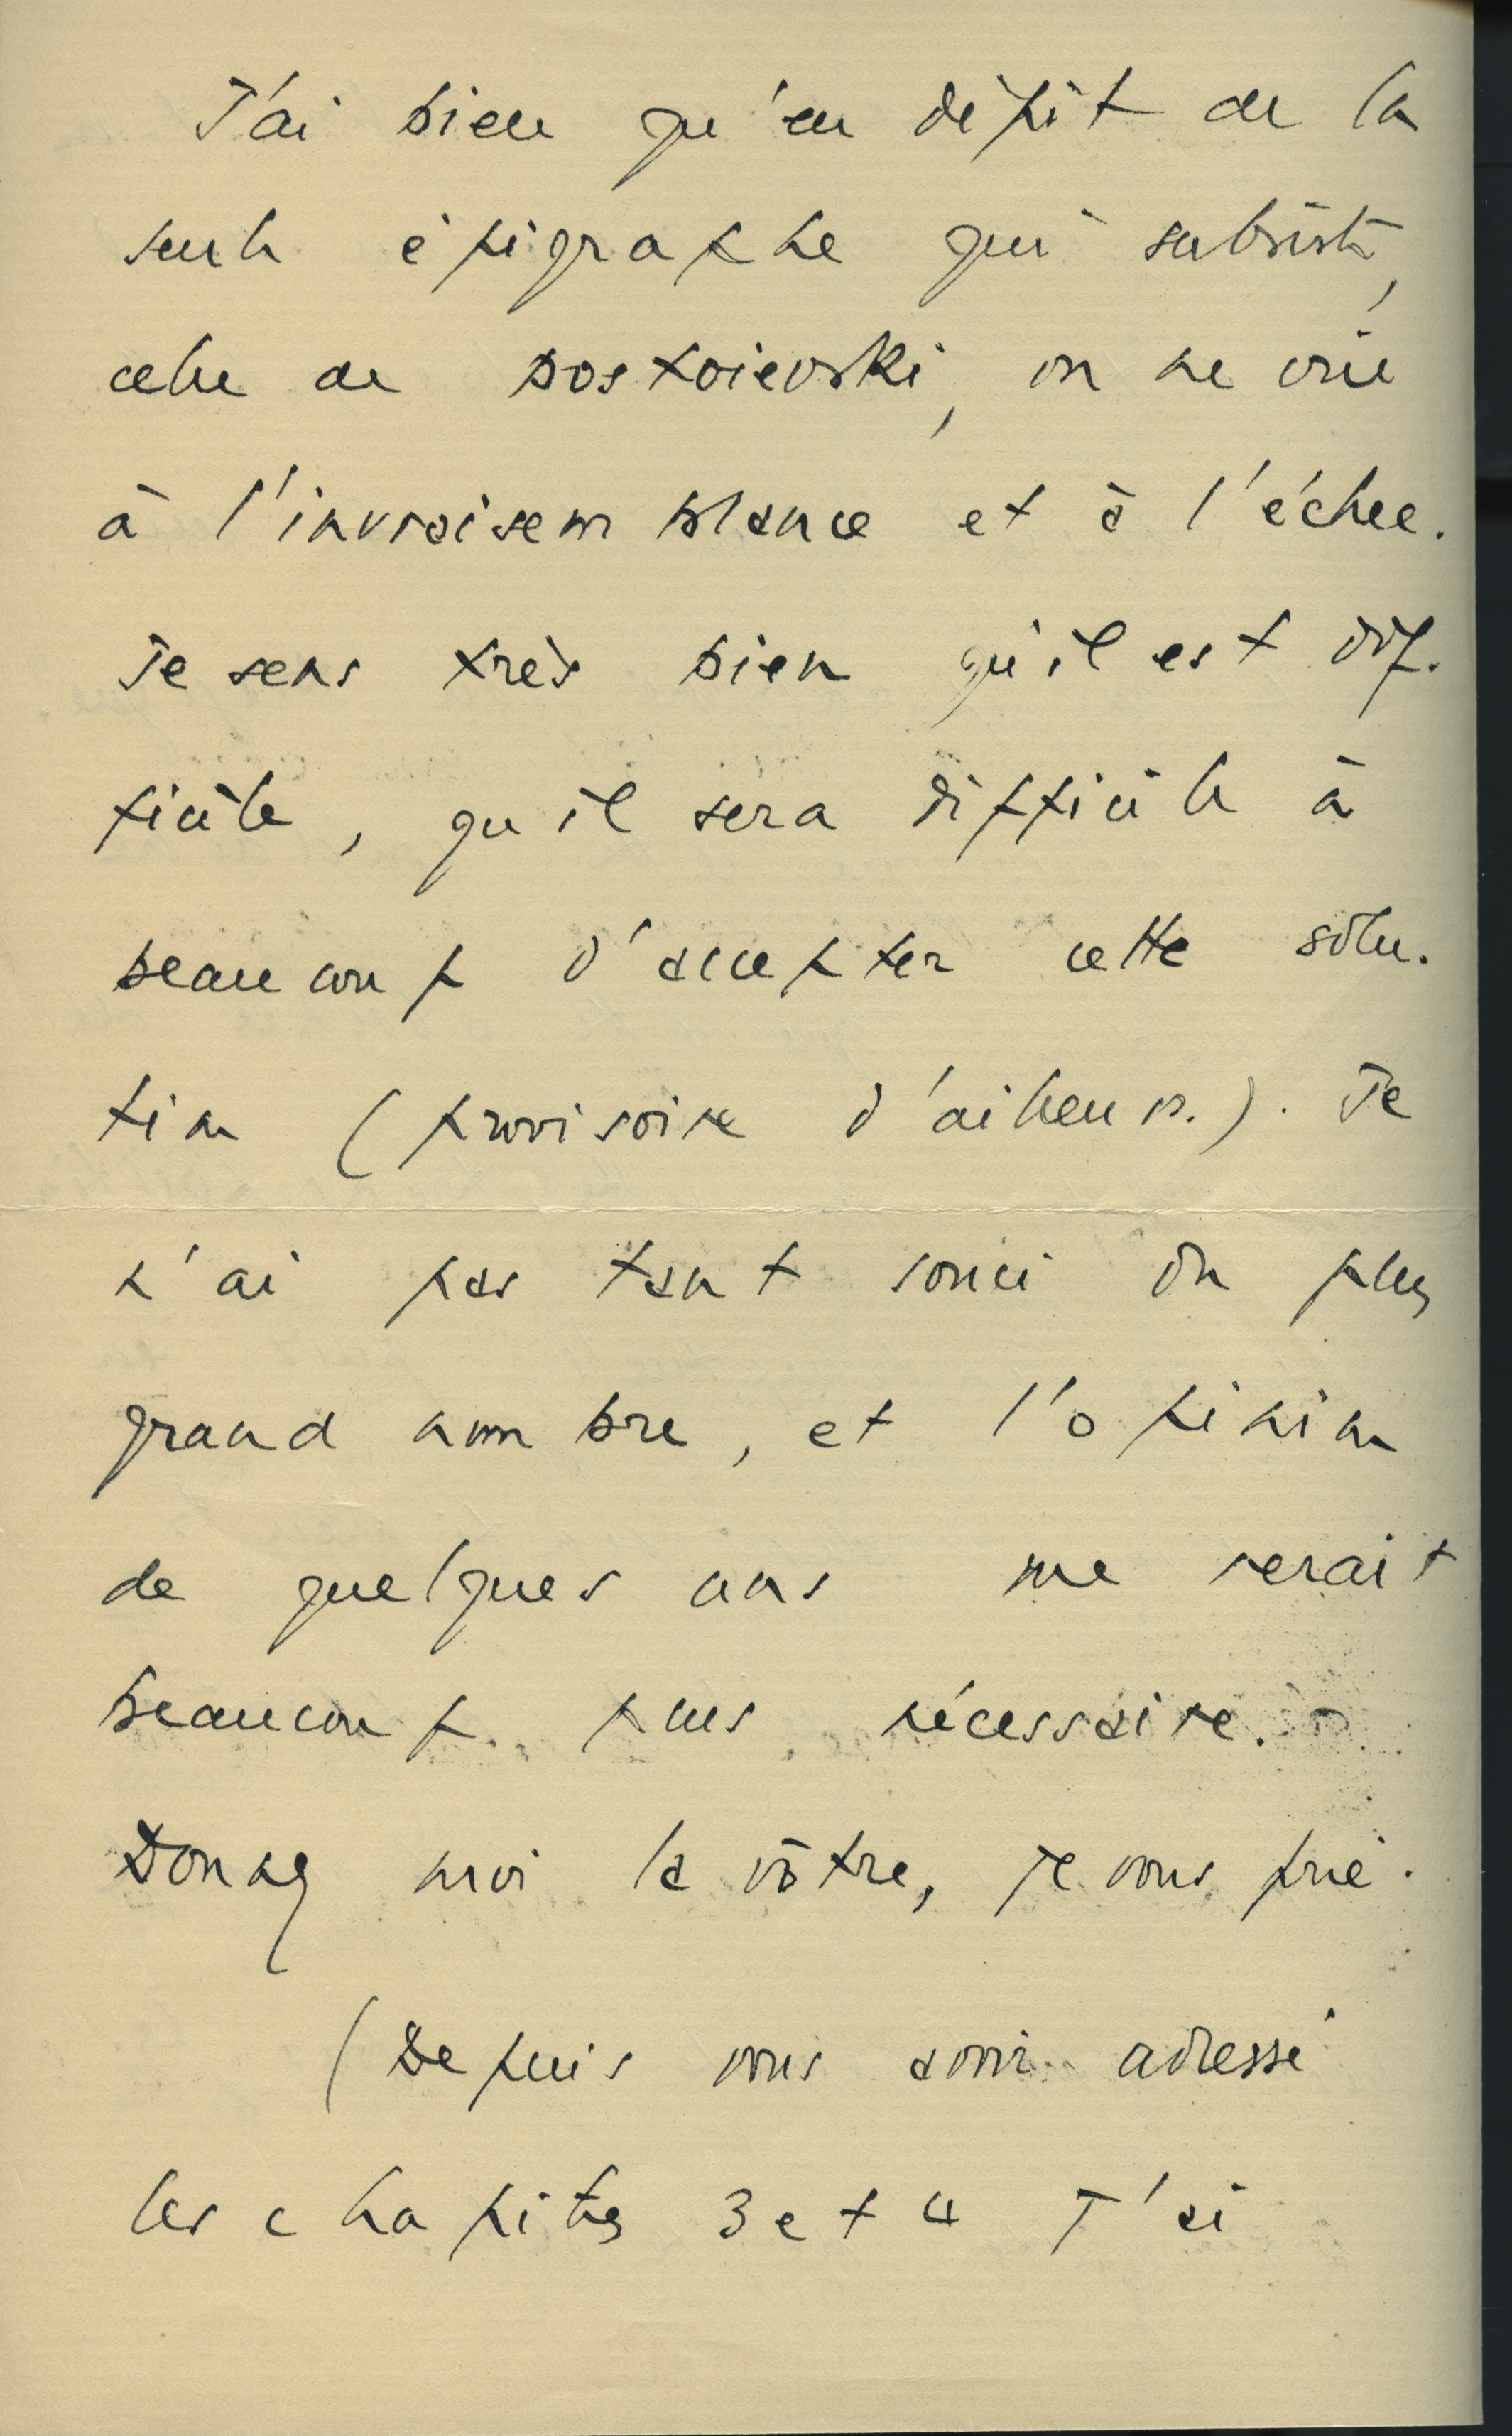 J'ai bien qu'en dépit de la
seule épigraphe qui subsiste,
celle de Dostoievski, on ne crie
à l'invraisemblance et à l'échec.
Je sens très bien qu'il est dif-
ficile, qu'il sera difficile à
beaucoup d'accepter cette solu-
tion (provisoire d'ailleurs.). Je
n'ai pas tant souci du plus
grand nombre, et l'opinion
de quelques uns me serait
beaucoup plus nécessaire.
Donnez moi la vôtre, je vous prie.
(Depuis vous avoir adressé
les chapitres 3 et 4 j'ai